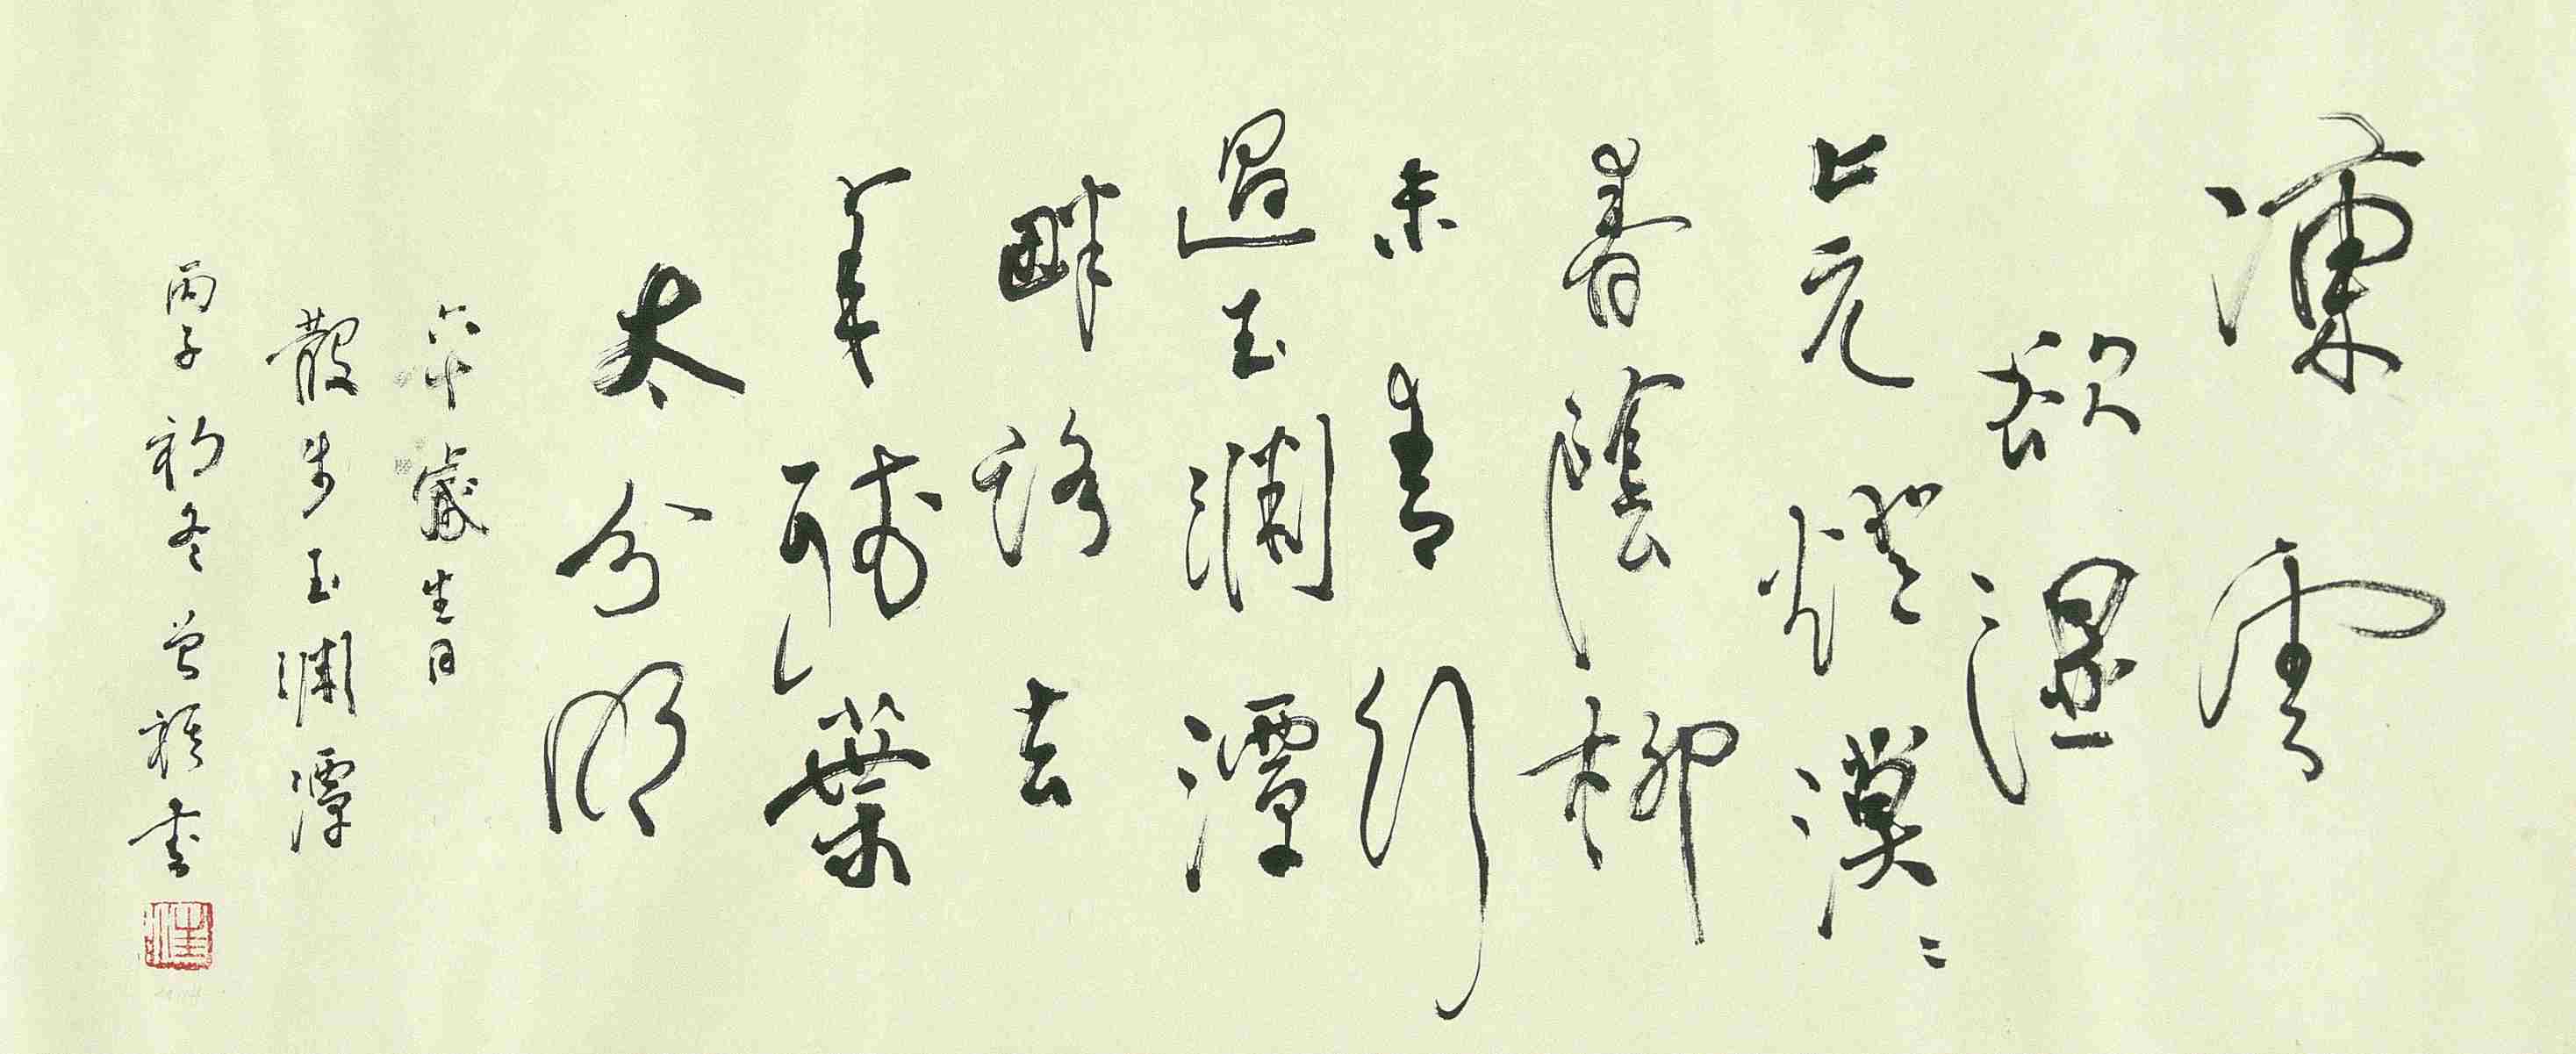 凍雲
欲濕
上元燈漠〻
春陰柳
未青行
過玉淵潭
畔路去
年殘葉
太分明
六十歲生日
散步玉淵潭
丙子初冬曾祺書